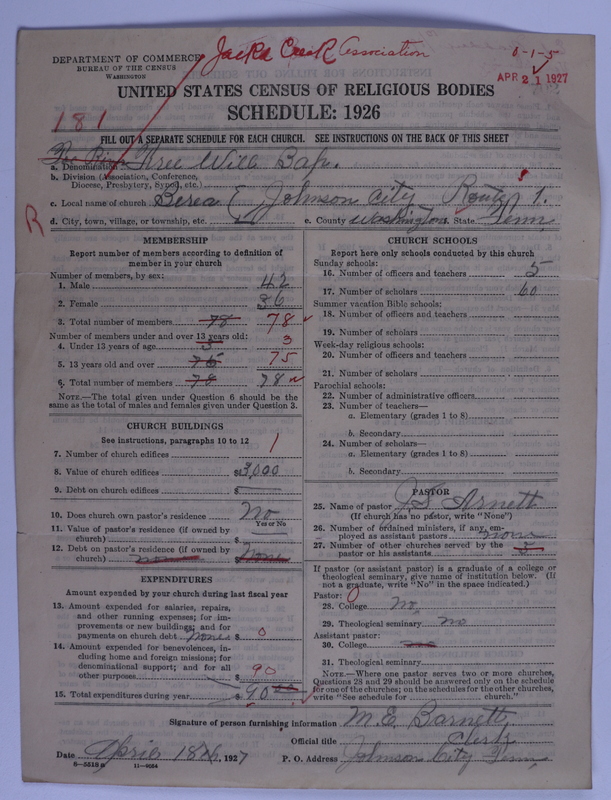 Jacks Creek Association
6-1-5
APR 21 1927
DEPARTMENT OF COMMERCE
BUREAU OF THE CENSUS
WASHINGTON
UNITED STATES CENSUS OF RELIGIOUS BODIES
SCHEDULE: 1926
181
FILL OUT A SEPARATE SCHEDULE FOR EACH CHURCH. SEE INSTRUCTIONS ON THE BACK OF THIS SHEET
a. Denomination Free Will Bap.
b. Division (Association, Conference,
Diocese, Presbytery, Synod, etc.)
c. Local name of church Berea Johnson City Route 1.
R
d. City, town, village, or township, etc.
e. County Washington State Tenn
MEMBERSHIP
Report number of members according to definition of
member in your church
Number of members, by sex:
1. Male 42
2. Female 36
3. Total number of members 78 78
Number of members under and over 13 years old:
4. Under 13 years of age 3 3
5. 13 years old and over 75 75
6. Total number of members 78 78
NOTE.—The total given under Question 6 should be the
same as the total of males and females given under Question 3.
CHURCH BUILDINGS
See instructions, paragraphs 10 to 12
7. Number of church edifices 1
8. Value of church edifices $3,000
9. Debt on church edifices $
10. Does church own pastor's residence No
Yes or No
11. Value of pastor's residence (if owned by
church) $
12. Debt on pastor's residence (if owned by
church) none $ None
EXPENDITURES
Amount expended by your church during last fiscal year
13. Amount expended for salaries, repairs,
and other running expenses; for im-
provements or new buildings; and for
payments on church debt none $ 0
14. Amount expended for benevolences, in-
cluding home and foreign missions; for
denominational support; and for all
other purposes $ 90
15. Total expenditures during year $ 90
CHURCH SCHOOLS
Report here only schools conducted by this church
Sunday schools:
16. Number of officers and teachers 5
17. Number of scholars 60
Summer vacation Bible schools:
18. Number of officers and teachers
19. Number of scholars
Week-day religious schools:
20. Number of officers and teachers
21. Number of scholars
Parochial schools:
22. Number of administrative officers
23. Number of teachers—
a. Elementary (grades 1 to 8)
b. Secondary
24. Number of scholars—
a. Elementary (grades 1 to 8)
b. Secondary
PASTOR
25. Name of pastor Arnett
(If church has no pastor, write "None")
26. Number of ordained ministers, if any, em-
ployed as assistant pastors none
27. Number of other churches served by the
pastor or his assistants
If pastor (or assistant pastor) is a graduate of a college or
theological seminary, give name of institution below. (If
not a graduate, write "No" in the space indicated.)
Pastor: 0
28. College No
29. Theological seminary No
Assistant pastor:
30. College no
31. Theological seminary
NOTE.—Where one pastor serves two or more churches,
Questions 28 and 29 should be answered only on the schedule
for one of the churches; on the schedules for the other churches,
write "See schedule for church."
Signature of person furnishing information M.C. Barnett
Official title Clerk
Date April 18, 1927
P. O. Address Johnson City Tenn
8-5518a 11-9054